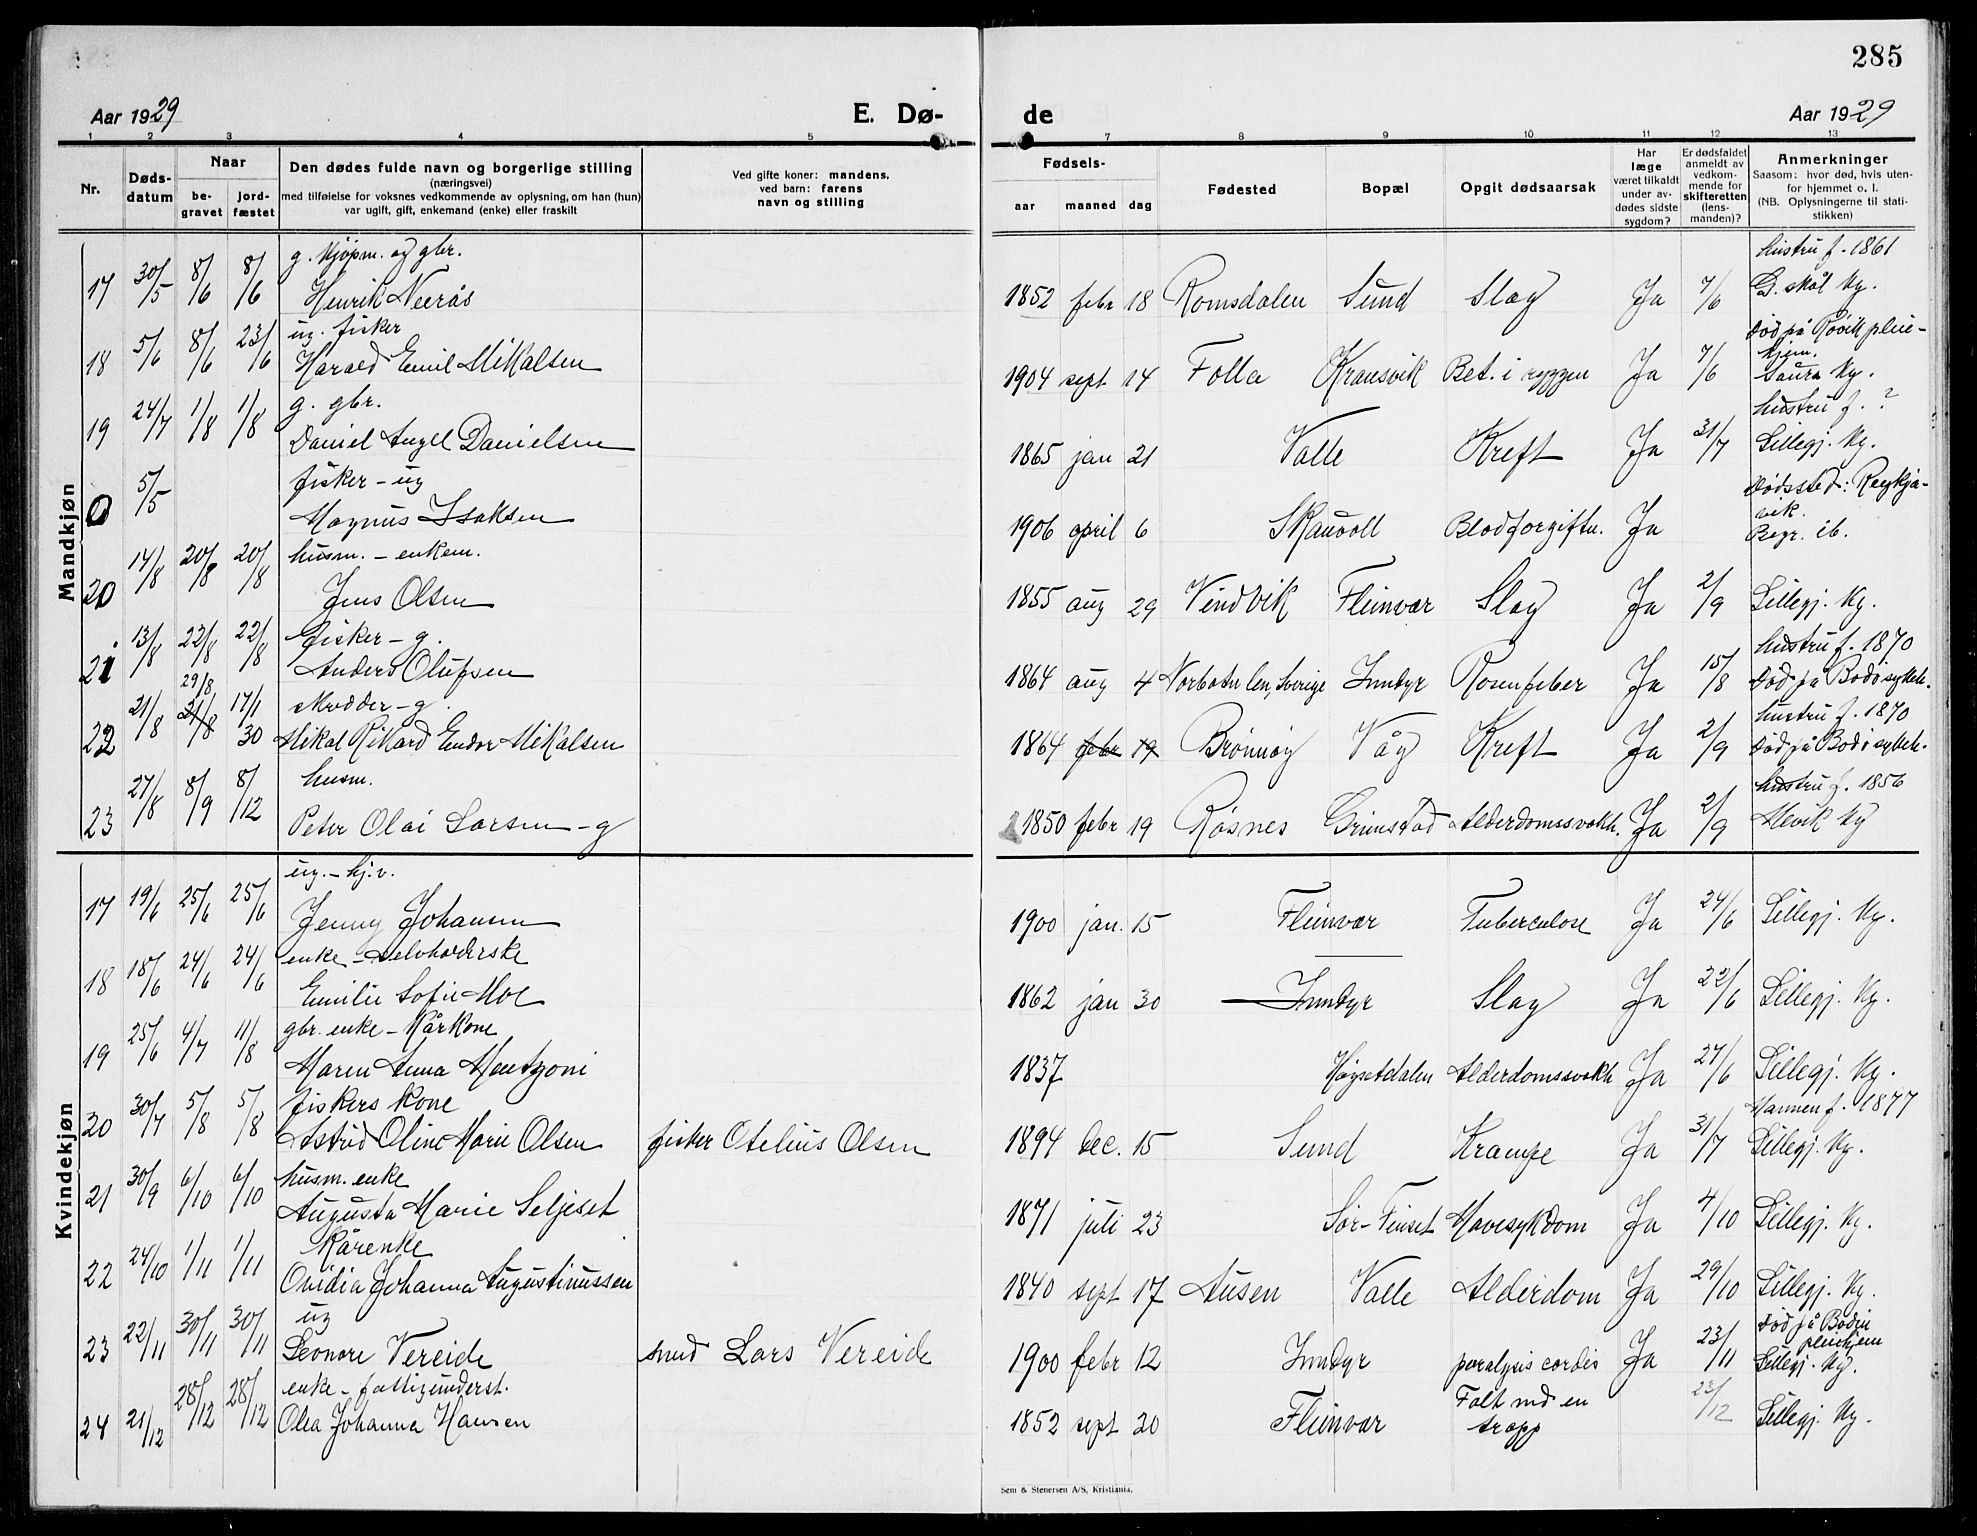 285
Aar 1929 E. Dø- de Aar 1929
1 2 3 4 5 7 8 9 10 11 12 13
Nr.
Døds-
datum
Naar
be-
gravet
jord-
fæstet
Den dødes fulde navn og borgerlige stilling
(næringsvei)
med tilføielse for voksnes vedkommende av oplysning, om han (hun)
var ugift, gift, enkemand (enke) eller fraskilt
Ved gifte koner: mandens,
ved barn: farens
navn og stilling
Fødsels-
aar maaned dag
Fødested
Bopæl
Opgit dødsaarsak
Har
læge
været tilkaldt
under av-
dødes sidste
sygdom?
Er dødsfaldet
anmeldt av
vedkom-
mende for
skifteretten
(lens-
manden)?
Anmerkninger
Saasom: hvor død, hvis uten-
for hjemmet o. l.
(NB. Oplysningerne til stati-
stikken)
Mandkjøn
g. kjøpm. og gbr. hustru f. 1861
17 30/5 8/6 8/6 Henrik Neerås 1852 febr 18 Romsdalen Sund Slag Ja 7/6 G.skål Kg.
ug. fisker Død på Røvik pleie-
hjem.
18 5/6 8/6 23/6 Harald Emil Mikalsen 1904 sept 14 Folla Kransvik Bet. i ryggen Ja 7/6 Saura Kg.
g. gbr. hustru f. ?
19 24/7 1/8 1/8 Daniel Angel Danielsen 1865 jan 21 Valle Kreft Ja 31/7 Lillegj. Kg.
fisker - ug Dødssted: Reykja-
vik.
0 5/5 Magnus Isaksen 1906 april 6 Skauvoll Blodforgiftn. Ja Begr. ib.
husm. - enkem.
20 14/8 20/8 20/8 Jens Olsen 1855 aug 29 Vindvik Fleinvær Slag Ja 2/9 Lillegj. Kg.
fisker - g. hustru f. 1870
21 13/8 22/8 22/8 Anders Olufsen 1864 aug 4 Norbotn len, Sverige Inndyr Rosenfeber Ja 15/8 Død på Bodø sykeh.
29/8
skredder - g. hustru f. 1870
22 21/8 21/8 17/1 30 Mikal Rikard Endor Mikalsen 1864 febr 19 Brønnøy Våg Kreft Ja 2/9 Død på Bodø sykeh.
husm. hustru f. 1856
23 27/8 8/9 8/12 Peter Olai Larsen - g 1850 febr 19 Røsnes Grimstad Alderdomssvakh. Ja 2/9 Mevik Kg
Kvindekjøn
ug. - hj.v.
17 19/6 25/6 25/6 Jenny Johansen 1900 jan. 15 Fleinvær Tuberculose Ja 24/6 Lillegj. Kg.
enke - selvhorderske
18 18/6 24/6 24/6 Emilie Sofie Moe 1862 jan 30 Inndyr Slag Ja 22/6 Lillegj. Kg.
gbr. enke - Kårkone
19 25/6 4/7 11/8 Maren Anna Mentzoni 1837 Høgsetdalen Alderdomssvakh Ja 27/6 Lillegj. Kg.
fiskers kone Mannen f. 1877
20 30/7 5/8 5/8 Astrid Oline Marie Olsen fisker Otelius Olsen 1894 dec. 15 Sund Krampe Ja 31/7 Lillegj. Kg.
husm. enke
21 30/9 6/10 6/10 Augusta Marie Seljeset 1871 juli 23 Sør-Finset Mavesykdom Ja 4/10 Lillegj. Kg.
Kårenke
22 24/10 1/11 1/11 Ovidia Johanna Augustinussen 1840 sept 17 Ausen Valle Alderdom Ja 29/10 Lillegj. Kg.
ug Død på Bodin
pleiehjem
23 22/11 30/11 30/11 Leonore Vereide smed Lars Vereide 1900 febr 12 Inndyr paralysis cordis Ja 23/11 Lillegj. Kg.
enke - fattigunderst. Falt ned en
24 21/12 28/12 28/12 Olea Johanna Hansen 1852 sept 20 Fleinvær trapp 23/12 Lillegj. Kg.
Sem & Stenersen A/S, Kristiania.